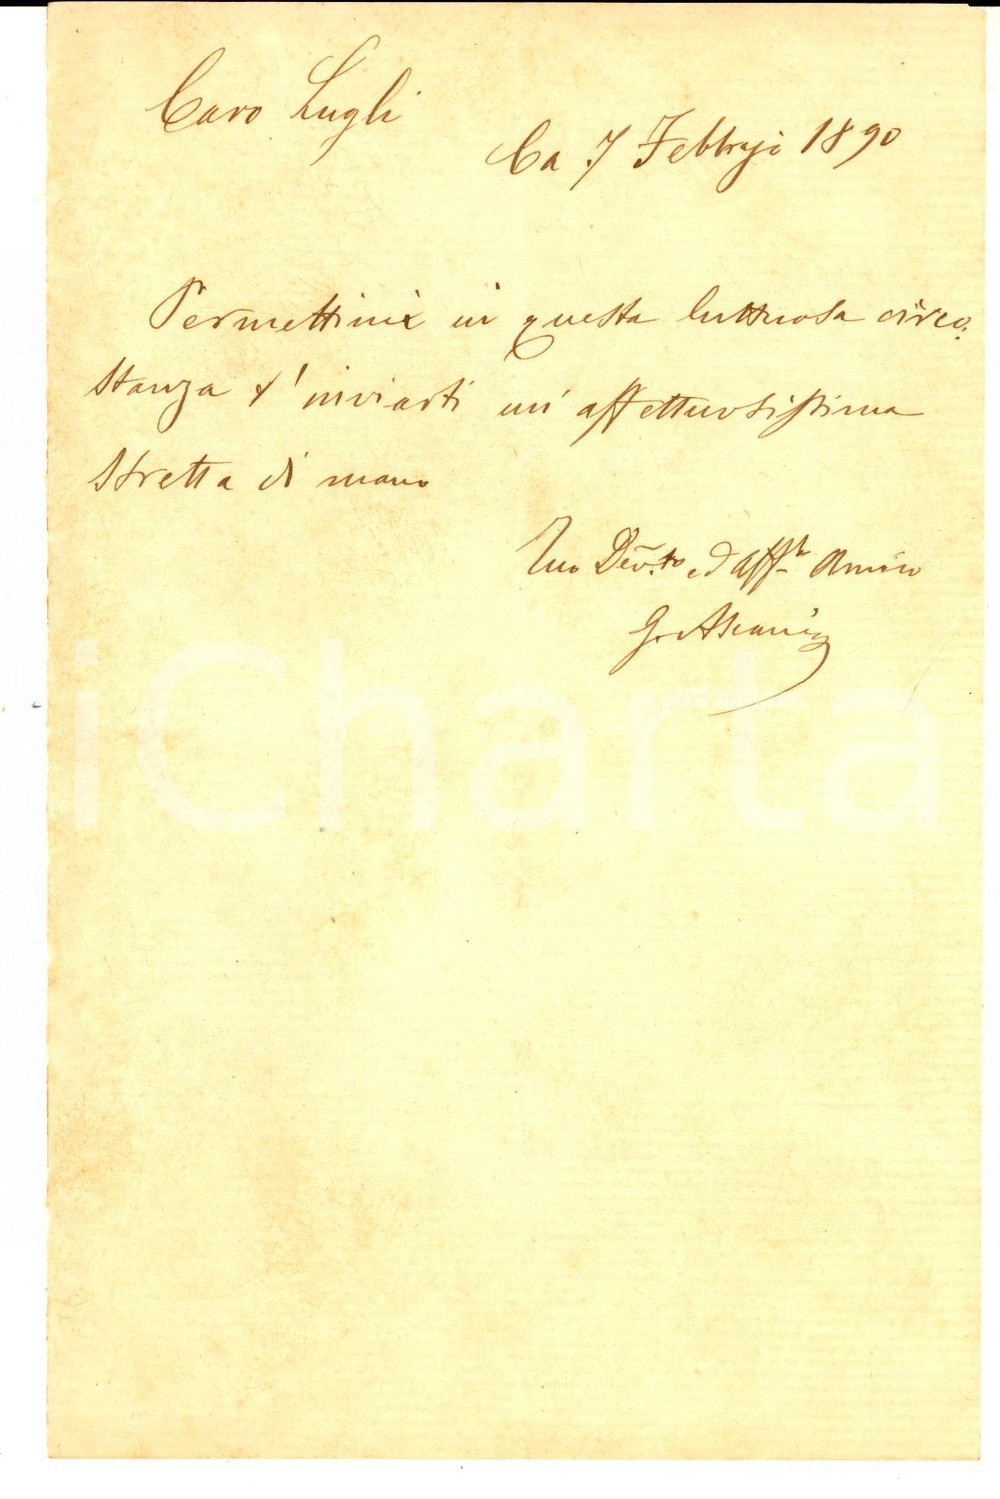 Caro Lugli
Ca 7 Febbrajo 1890
Permettimi in questa luttuosa circo:
stanza d'inviarti un' affettuosissima
stretta di mano
Tuo Dev.to ed Aff.to Amico
G. Ascani
iCharta